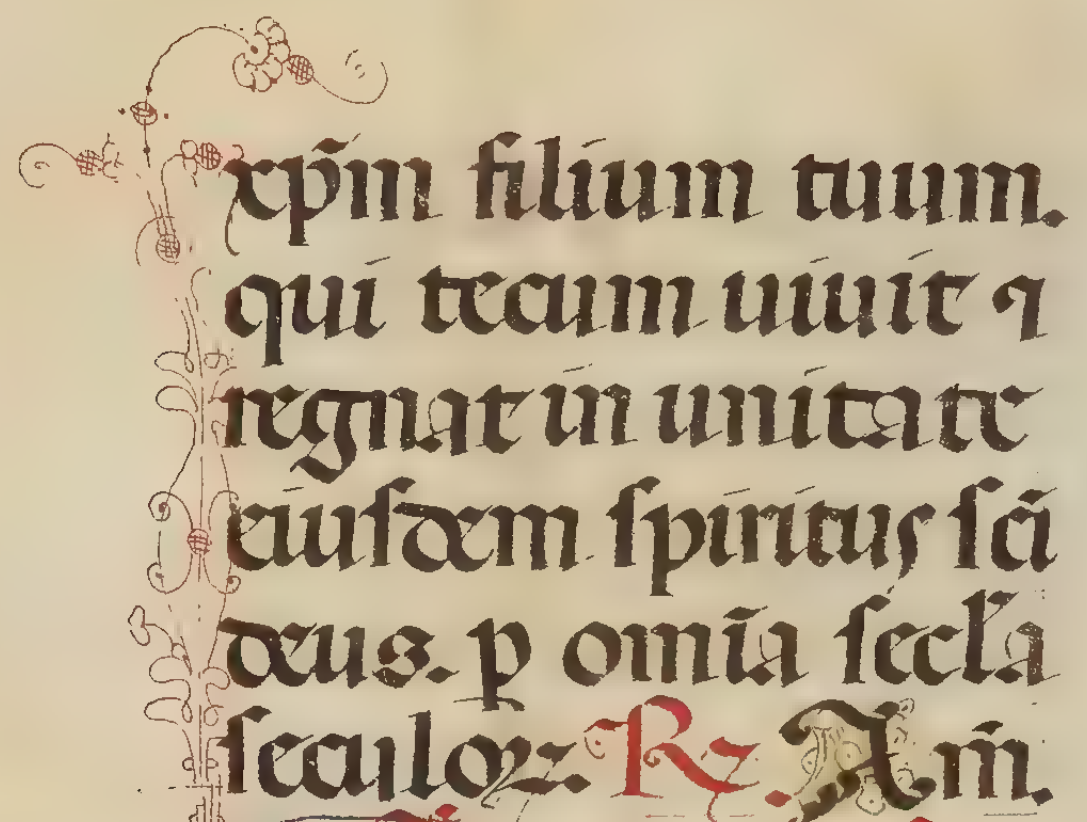 xp̄m filium tuum.
qui tecum uiuit ⁊
regnat in unitate
eiuſdem ſpiritus ſc̄i
deus. ꝑ om̄ia ſecl̓a
ſeculoꝝ ℞. Am̄.